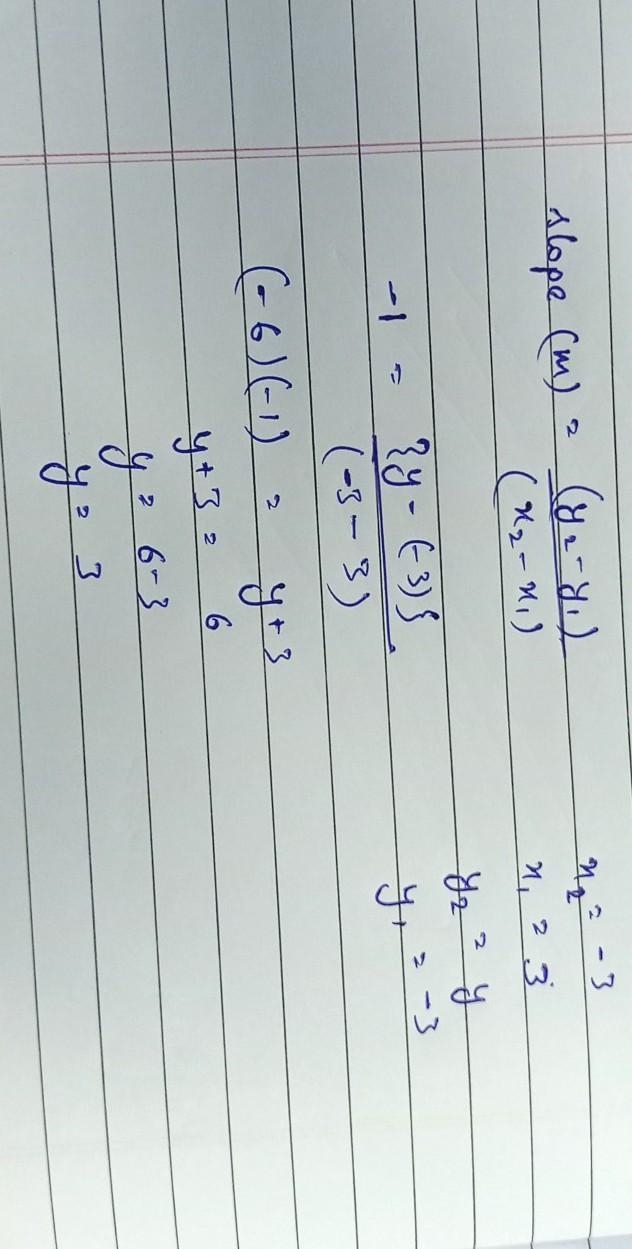 slope (m) = (y₂ - y₁)
(x₂ - x₁)
x₂ = -3
x₁ = 3
y₂ = y
y₁ = -3
-1 = {y - (-3)}
(-3 - 3)
(-6)(-1) = y + 3
y + 3 = 6
y = 6 - 3
y = 3